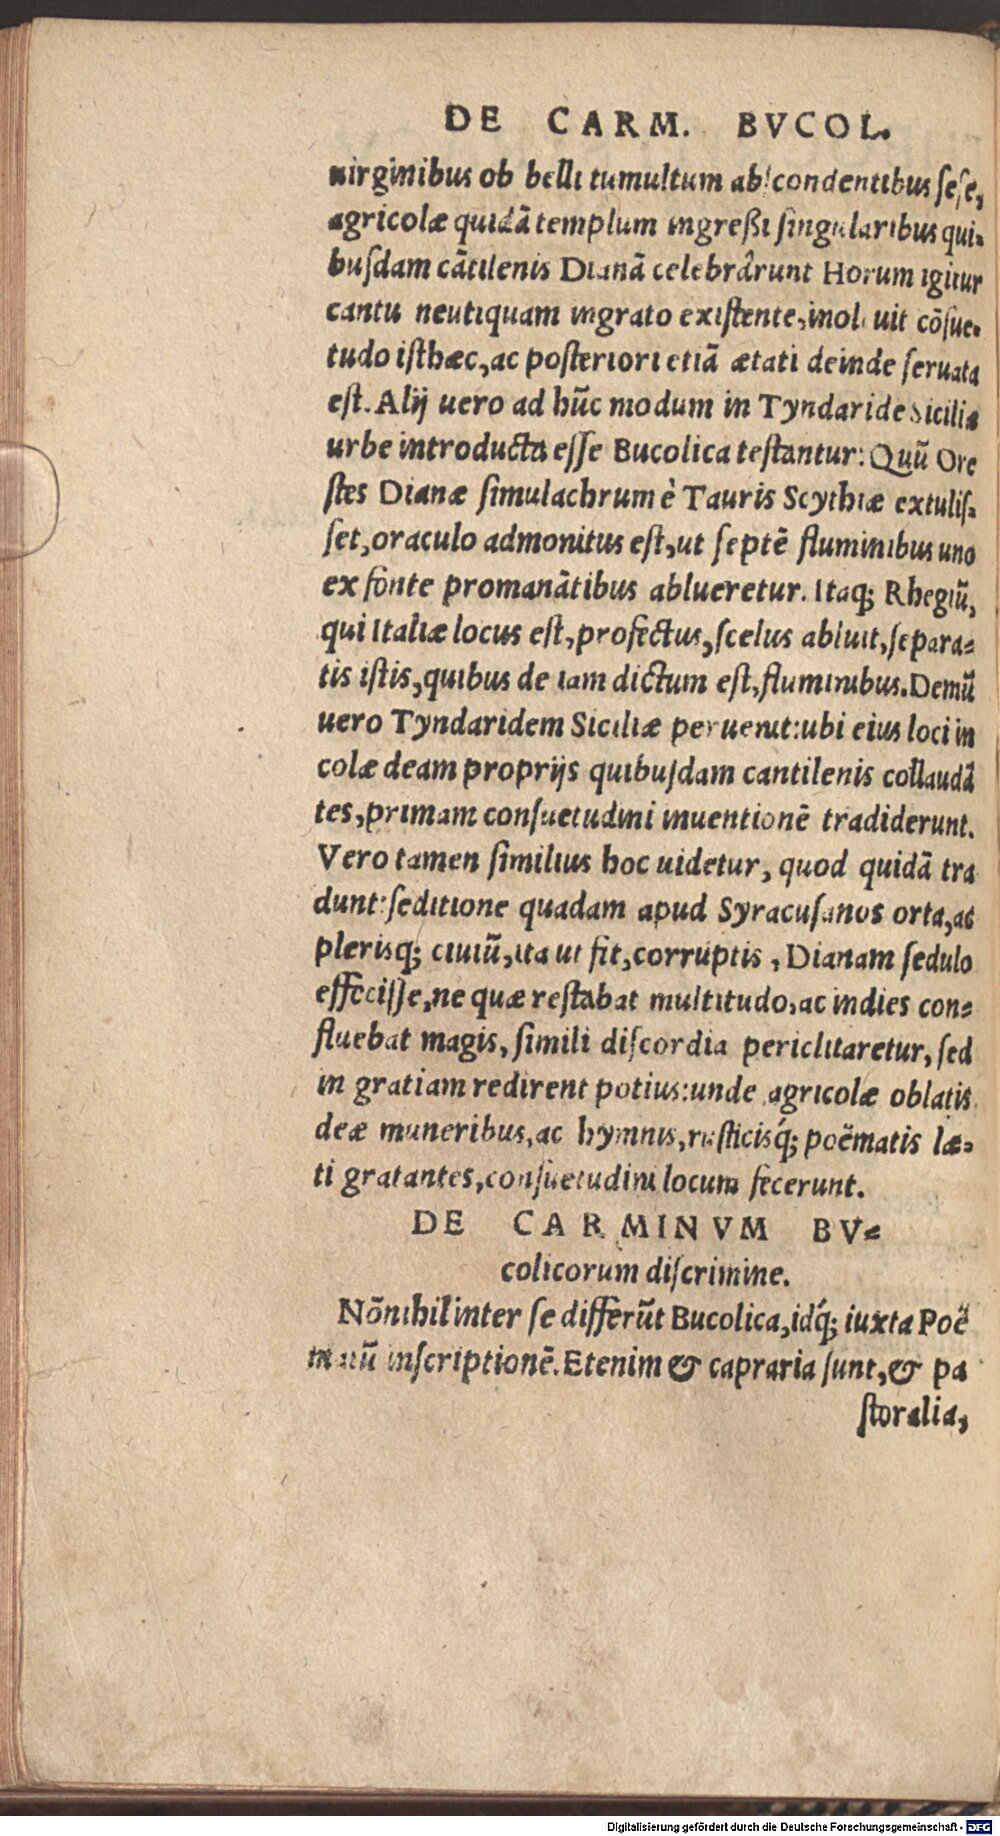 DE CARM. BVCOL.
uirginibus ob belli tumultum abſcondentibus ſeſe,
agricolæ quidā templum ingreßi ſingularibus qui-
buſdam cātilenis Dianā celebrârunt Horum igitur
cantu neutiquam ingrato exiſtente, inoluit cōſue-
tudo iſthæc, ac poſteriori etiā ætati deinde ſeruata
eſt. Alij uero ad hūc modum in Tyndaride Siciliæ
urbe introducta eſſe Bucolica teſtantur: Quū Ore
ſtes Dianæ ſimulachrum è Tauris Scythiæ extuliſ-
ſet, oraculo admonitus eſt, ut ſeptē fluminibus uno
ex fonte promanātibus ablueretur. Itaq; Rhegiū,
qui Italiæ locus eſt, profectus, ſcelus abluit, ſepara-
tis iſtis, quibus de iam dictum eſt, fluminibus. Demū
uero Tyndaridem Siciliæ peruenit: ubi eius loci in
colæ deam proprijs quibuſdam cantilenis collaudā
tes, primam conſuetudini inuentionē tradiderunt.
Vero tamen ſimilius hoc uidetur, quod quidā tra
dunt: ſeditione quadam apud Syracuſanos orta, ac
plerisq; ciuiū, ita ut fit, corruptis, Dianam ſedulo
effeciſſe, ne quæ reſtabat multitudo, ac indies con-
fluebat magis, ſimili diſcordia periclitaretur, ſed
in gratiam redirent potius: unde agricolæ oblatis
deæ muneribus, ac hymnis, ruſticisq́; poëmatis læ-
ti gratantes, conſuetudini locum fecerunt.
DE CARMINVM BV-
colicorum diſcrimine.
Nōnihil inter ſe differūt Bucolica, idq́; iuxta Poë
matū inſcriptionē. Etenim & capraria ſunt, & pa
ſtoralia,
Digitalisierung gefördert durch die Deutsche Forschungsgemeinschaft - DFG